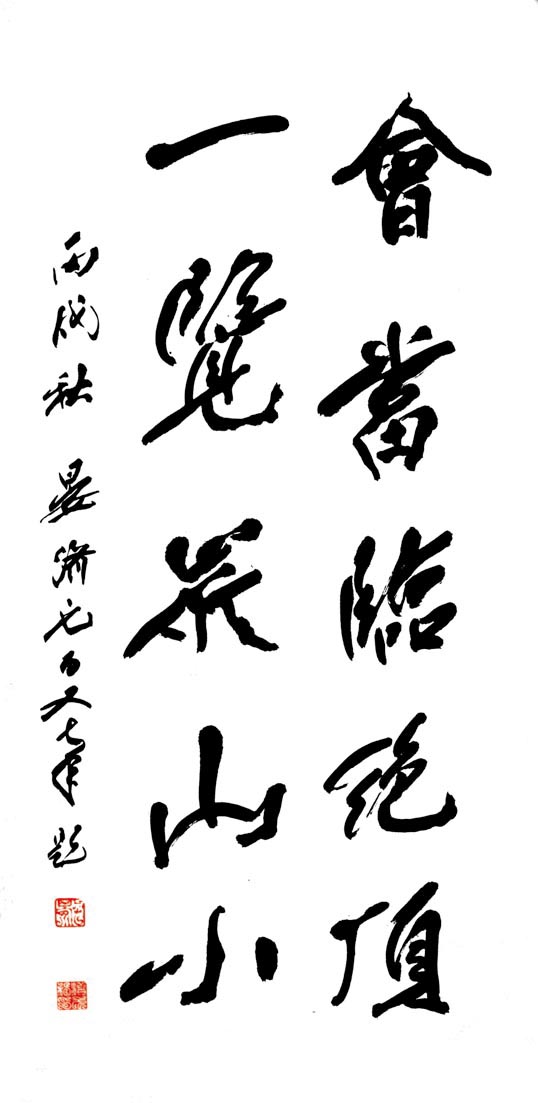 會當臨絶頂
一覽衆山小
丙戌秋 晏濟元百又七年題